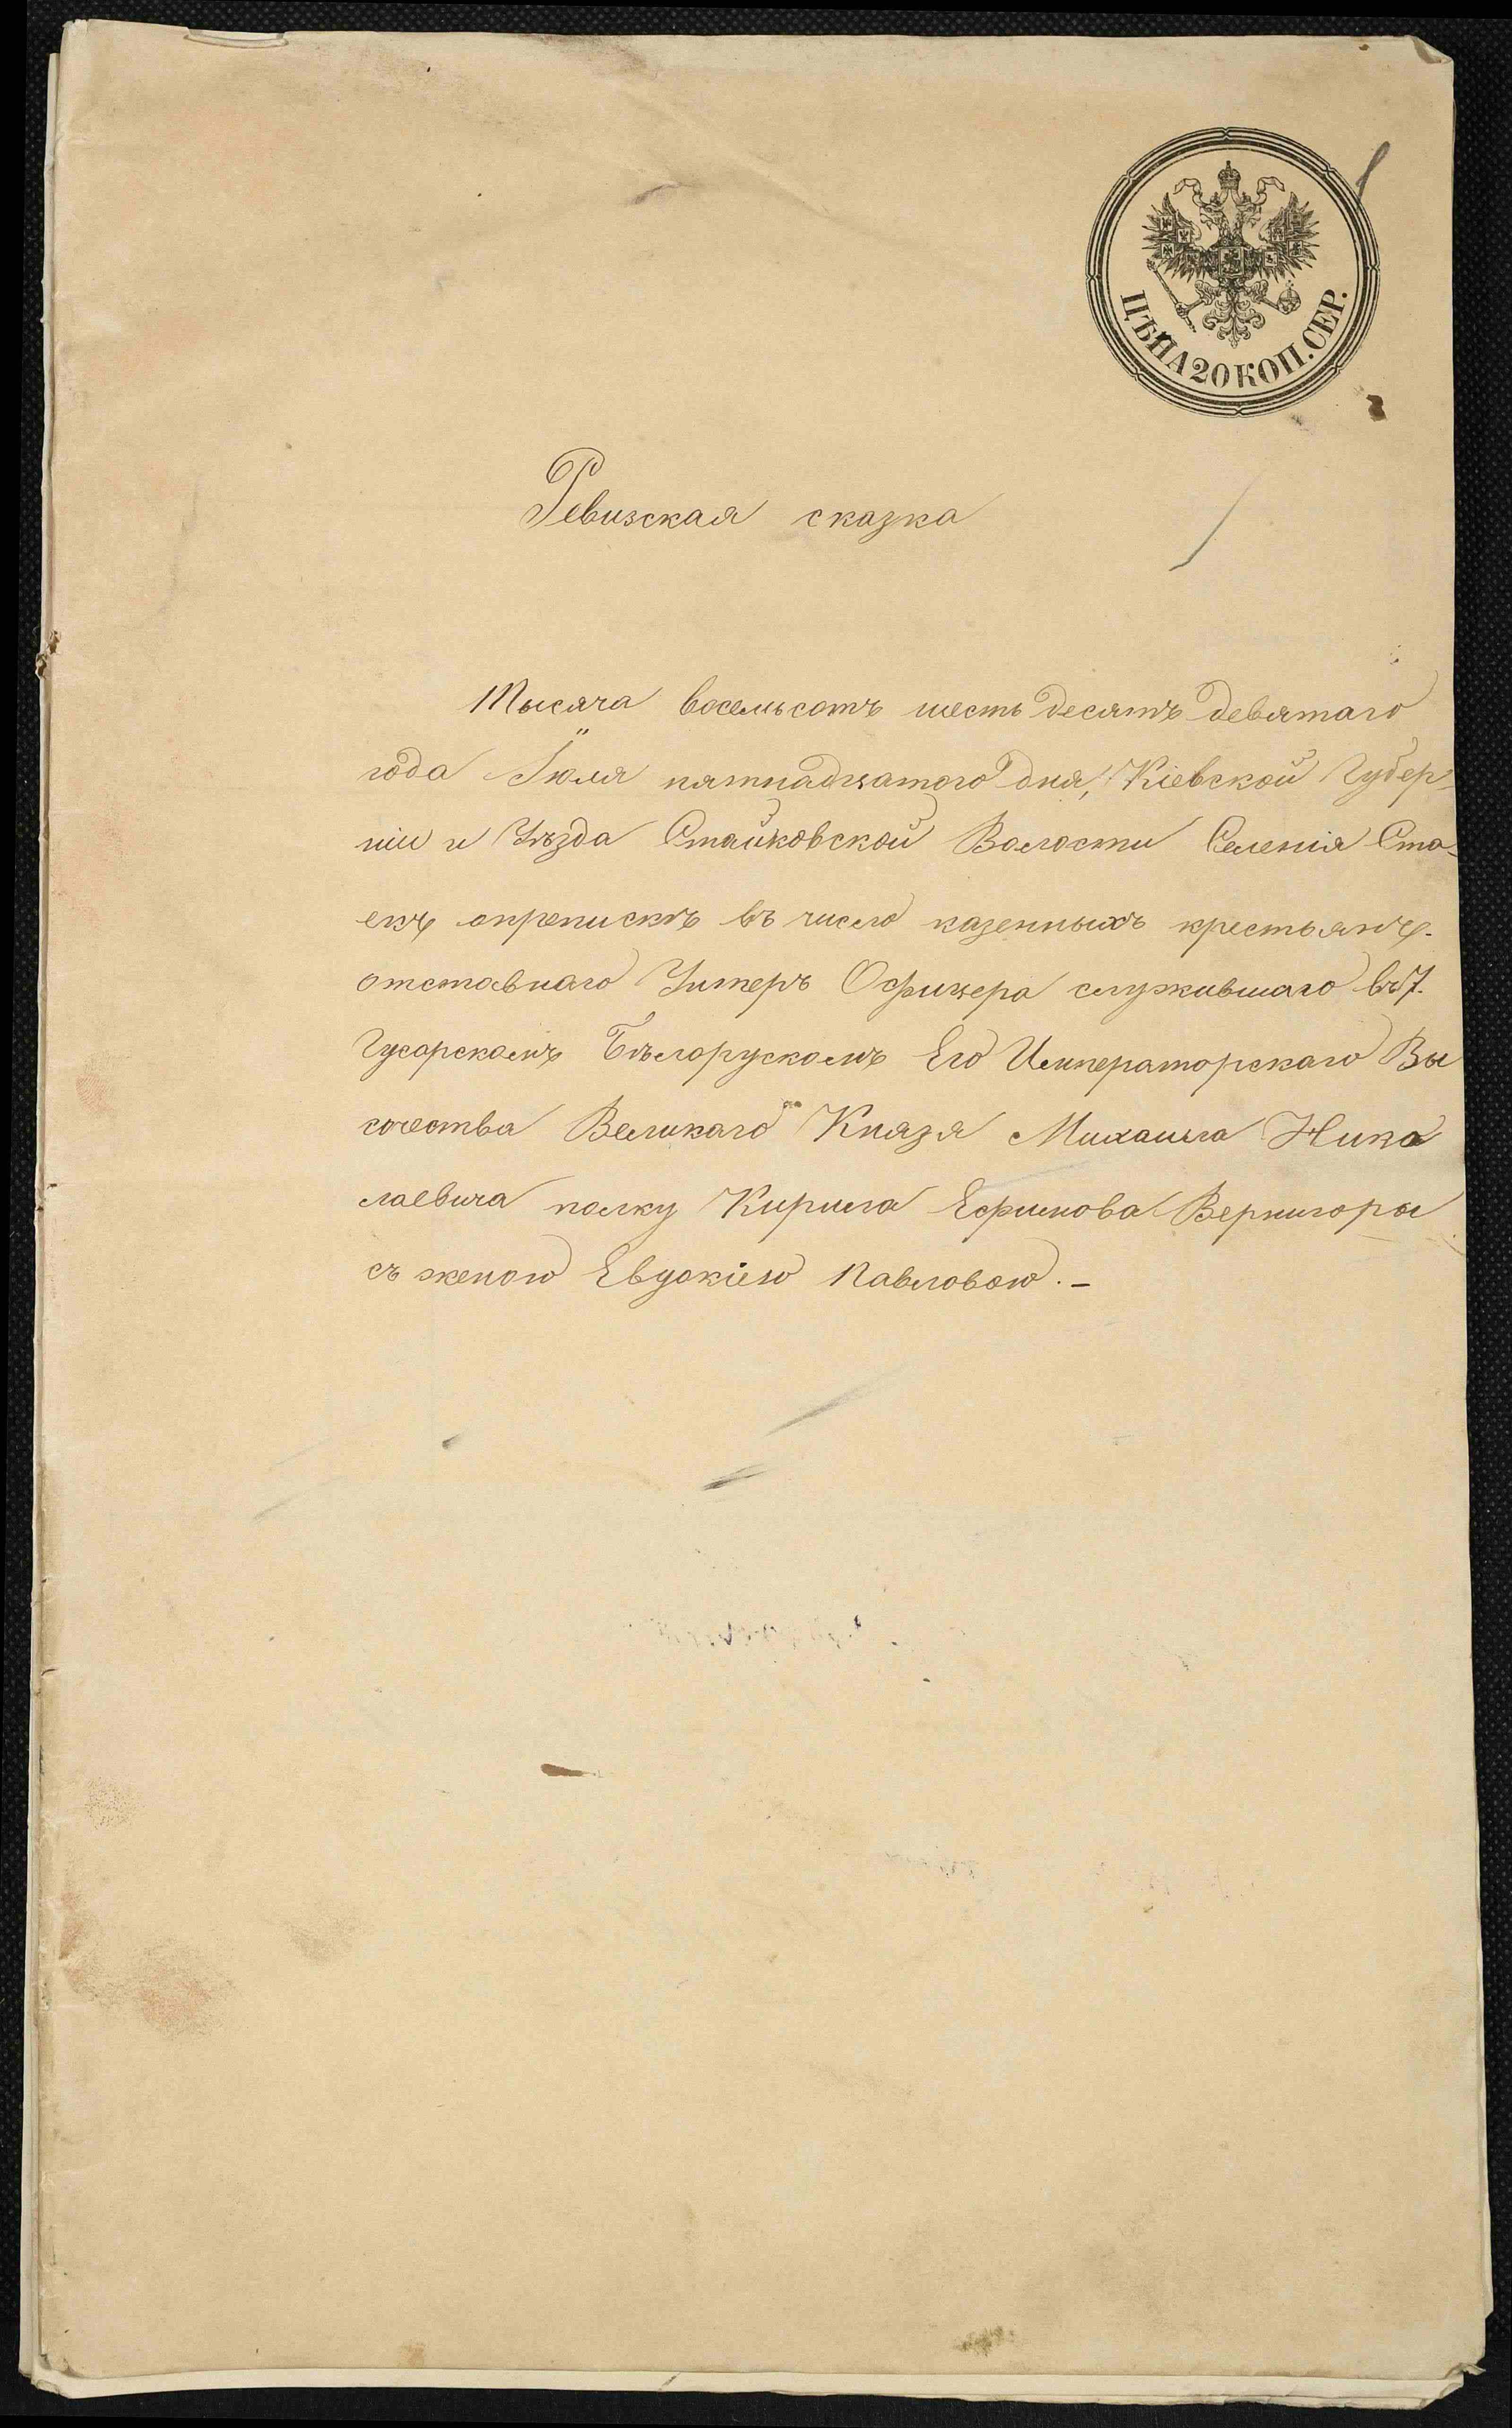 ЦѢНА 20 КОП. СЕР.
Ревизская сказка
Тысяча восемьсотъ шестьдесятъ девятаго
года Іюля пятнадцатого дня, Кіевской Губер-
ніи и Уѣзда Стайковской Волости Селенія Ста-
екъ о припискѣ въ число казенныхъ крестьянъ.
отставнаго Унтеръ Офицера служившаго въ 7.
Гусарскомъ Бѣлорускомъ Его Императорскаго Вы
сочества Великаго Князя Михаила Нико
лаевича полку Кирила Ефимова Вернигоры
съ женою Евдокіею Павловою. –